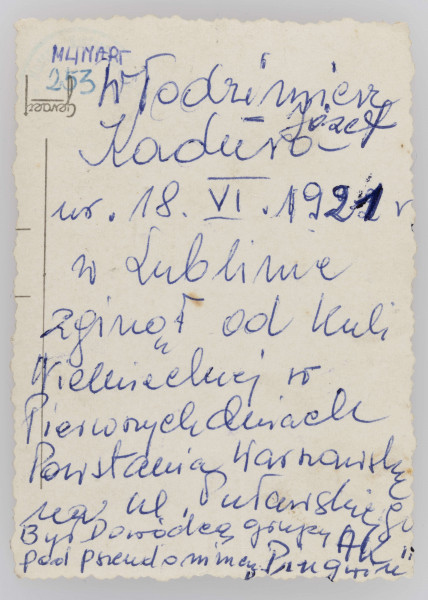 MLINART
253
Gevaert
Włodzimierz
Józef
Kaduro
ur. 18. VI. 1921 r.
w Lublinie
zginął od kuli
Niemieckiej w
Pierwszych dniach
Powstania Warszawskiego
na ul. Puławskiego
Był Dowódcą grupy AK
pod pseudonimem „Pingwin"